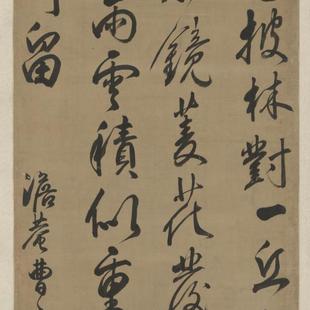 披林對一丘
鏡菱花發
雨雲積似重
留
澹菴曹